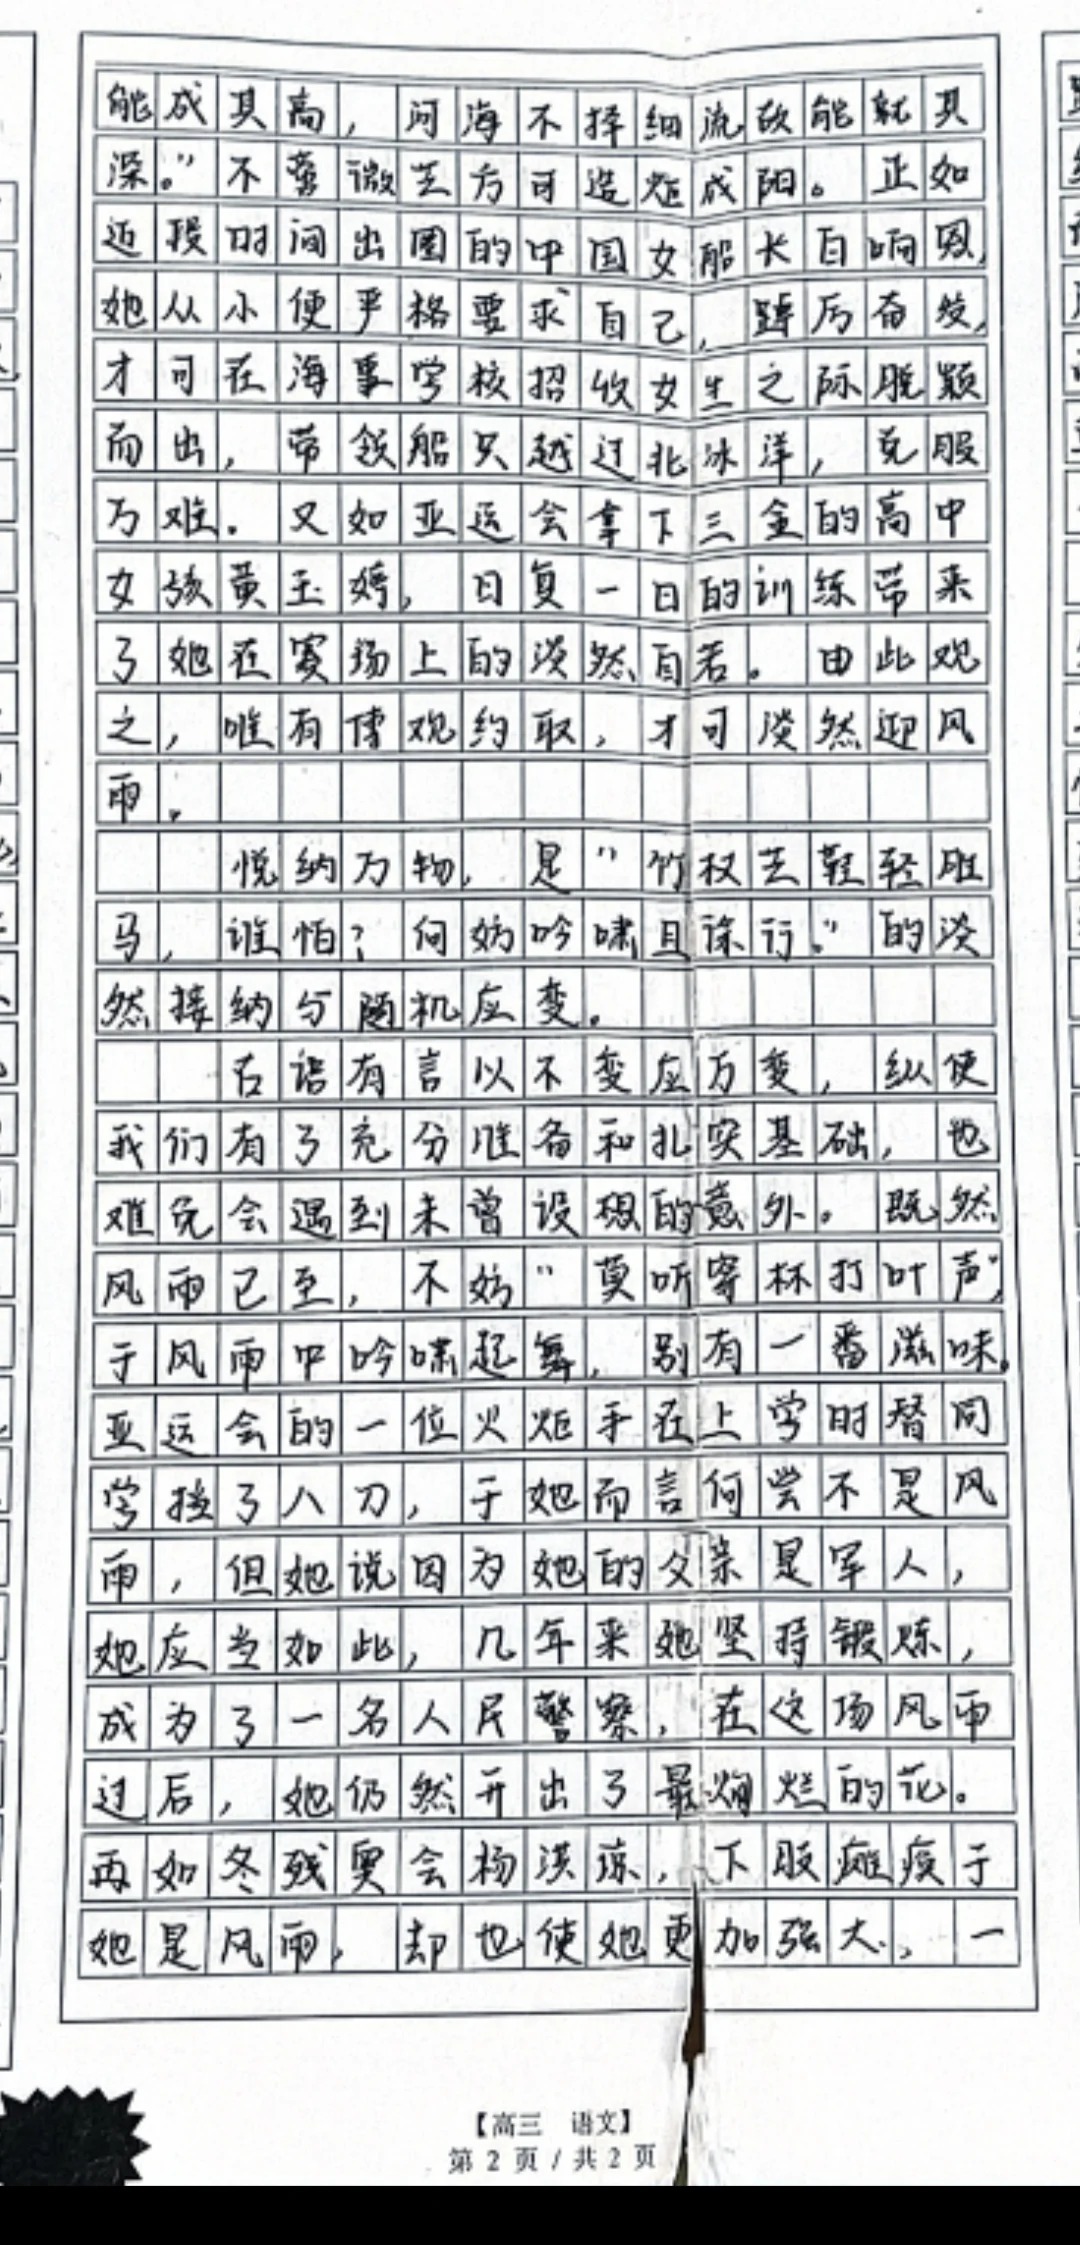 能成其高，河海不择细流故能就其
深。”不薄微芒方可造炬成阳。正如
近段时间出圈的中国女船长白响恩，
她从小便严格要求自己，踔厉奋发，
才可在海事学校招收女生之际脱颖
而出，带领船只越过北冰洋，克服
万难。又如亚运会拿下三金的高中
女孩黄玉婷，日复一日的训练带来
了她在赛场上的淡然自若。由此观
之，唯有博观约取，才可淡然迎风
雨。
悦纳万物，是“竹杖芒鞋轻胜
马，谁怕？何妨吟啸且徐行。”的淡
然接纳与随机应变。
古语有言以不变应万变，纵使
我们有了充分准备和扎实基础，也
难免会遇到未曾设想的意外。既然
风雨已至，不妨“莫听穿林打叶声”，
于风雨中吟啸起舞，别有一番滋味。
亚运会的一位火炬手在上学时替同
学挡了八刀，于她而言何尝不是风
雨，但她说因为她的父亲是军人，
她应当如此，几年来她坚持锻炼，
成为了一名人民警察，在这场风雨
过后，她仍然开出了最绚烂的花。
再如冬残奥会杨洪琼，下肢瘫痪于
她是风雨，却也使她更加强大，一
【高三 语文】
第 2 页 / 共 2 页